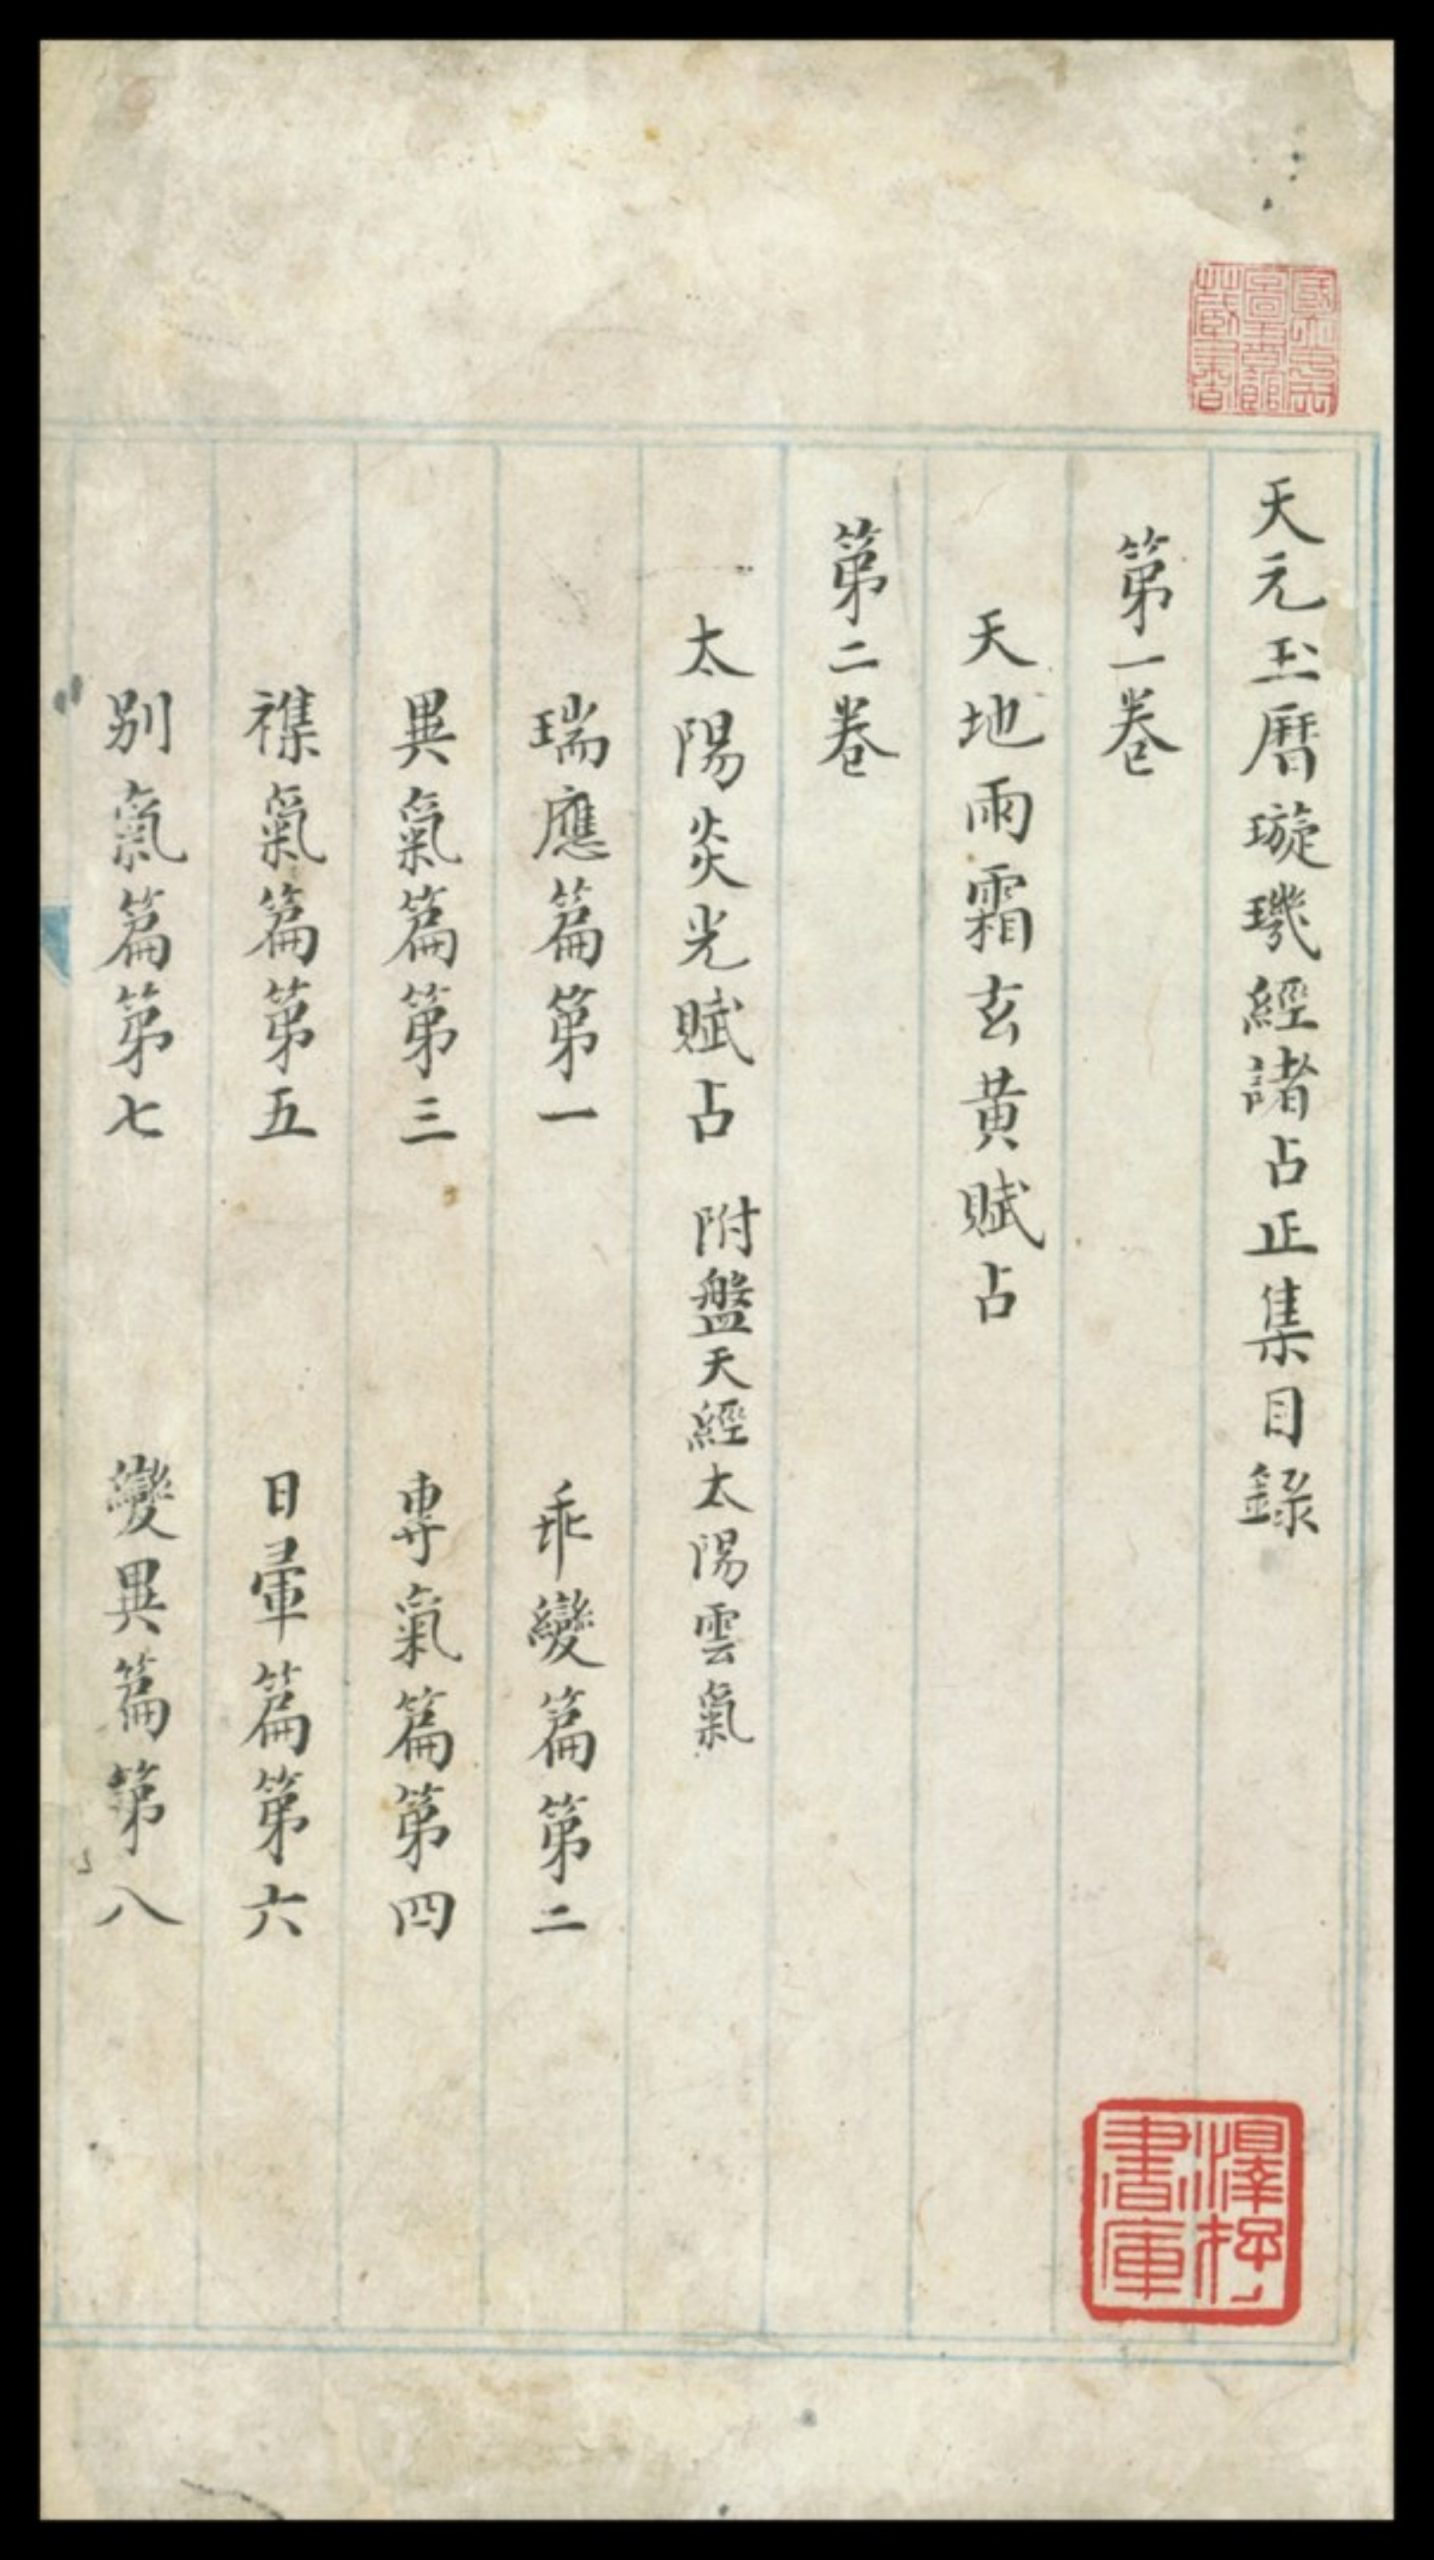 天元玉曆璇璣經諸占正集目錄
第一卷
天地雨霜玄黃賦占
第二卷
太陽炎光賦占 附盤天經太陽雲氣
瑞應篇第一 乖變篇第二
異氣篇第三 專氣篇第四
襍氣篇第五 日暈篇第六
別氣篇第七 變異篇第八
澤存書庫